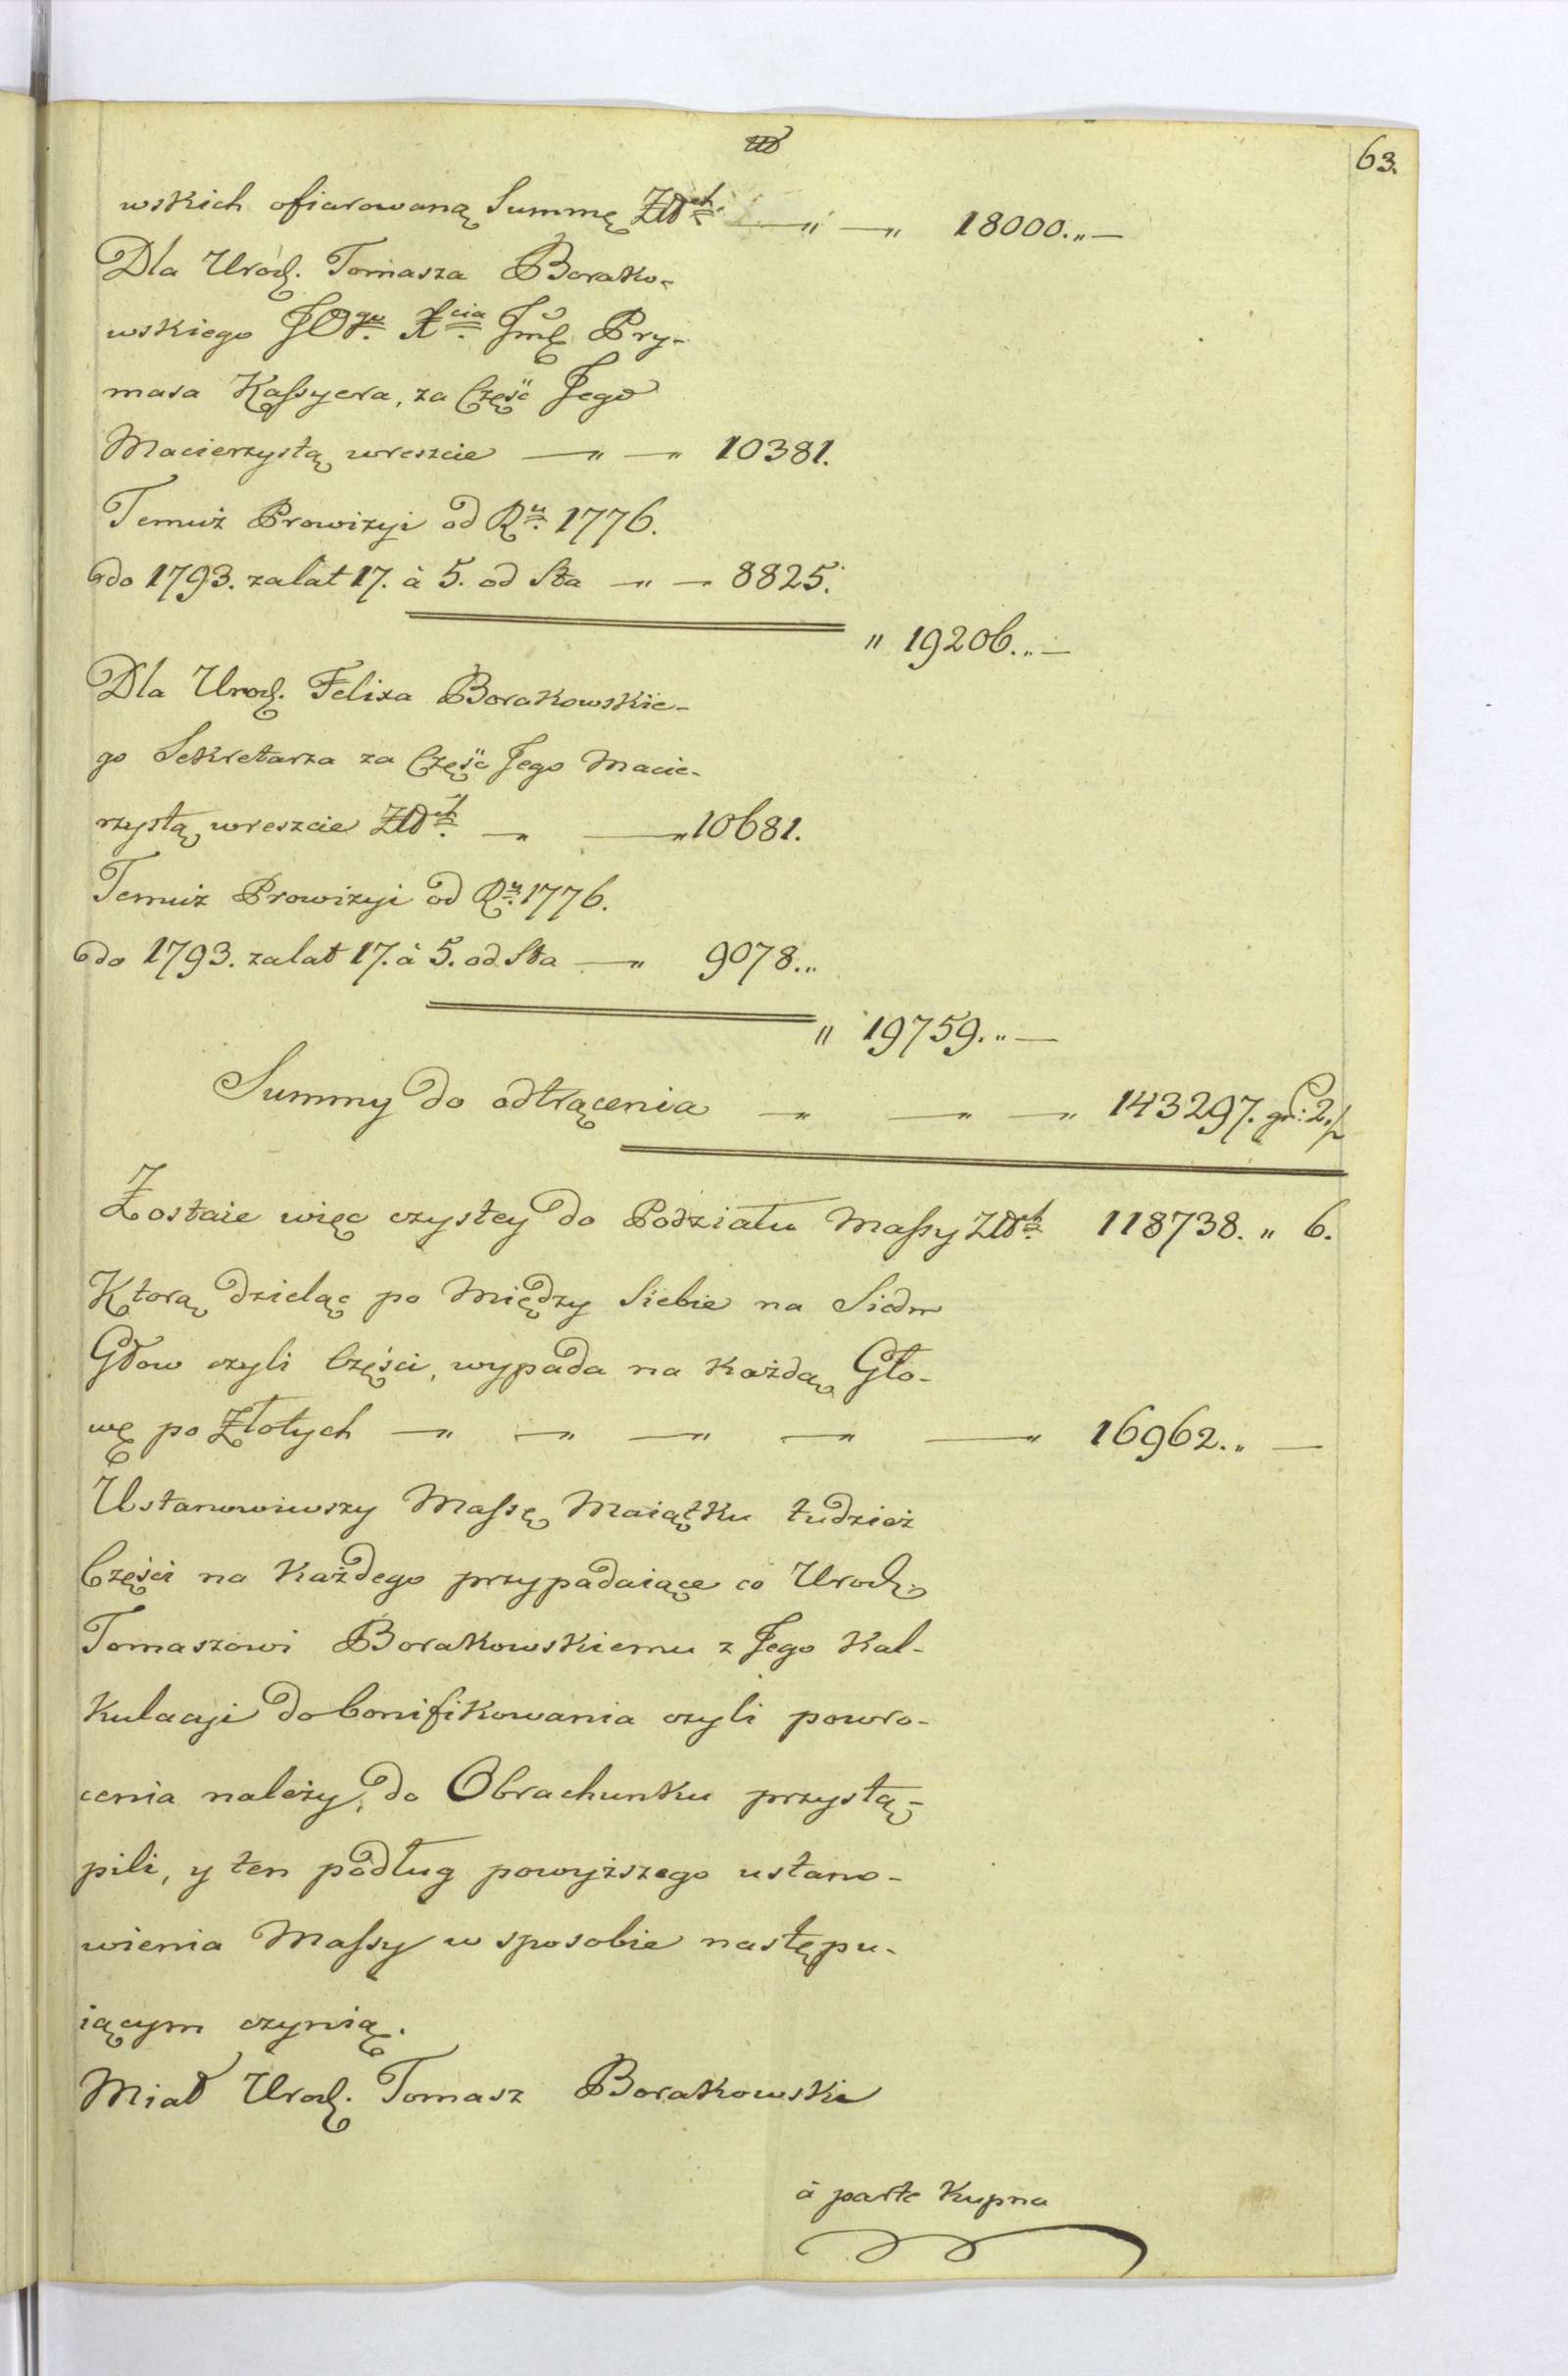 63.
wskich ofiarowaną Summę Złch „ — „ 18000. „ —
Dla Urod. Tomasza Borako-
wskiego JOgo Xcia Jmć Pry-
masa Kaſsyera, za Część Jego
Macierzystą wreszcie — „ — „ 10381.
Temuż Prowizyi od Ru 1776.
do 1793. za lat 17. à 5. od Sta — „ — 8825.
„ 19206. „ —
Dla Urod. Felixa Borakowskie-
go Sekretarza za Część Jego Macie-
rzystą wreszcie Złch — „ — „ 10681.
Temuż Prowizyi od Ru 1776.
do 1793. za lat 17. à 5. od Sta — „ 9078. „
„ 19759. „ —
Summy do odtrącenia — „ — „ — „ 143297. gr: 2.
Zostaie więc czystey do Podziału Maſsy Złch 118738. „ 6.
Ktorą dzieląc po Między Siebie na Siedm
Głow czyli Części, wypada na każdą Gło-
wę po Złotych — „ — „ — „ — „ — „ 16962. „ —
Ustanowiwszy Maſsę Maiątku tudzież
Części na każdego przypadaiące co Urod.
Tomaszowi Borakowskiemu z Jego Kal-
kulacyi do bonifikowania czyli powro-
cenia należy, do Obrachunku przystą-
pili, y ten podług powyższego ustano-
wienia Maſsy w sposobie następu-
iącym czynią.
Miał Urod. Tomasz Borakowski
à parte Kupna